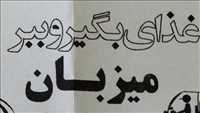 غذای بگیر و ببر
میزبان